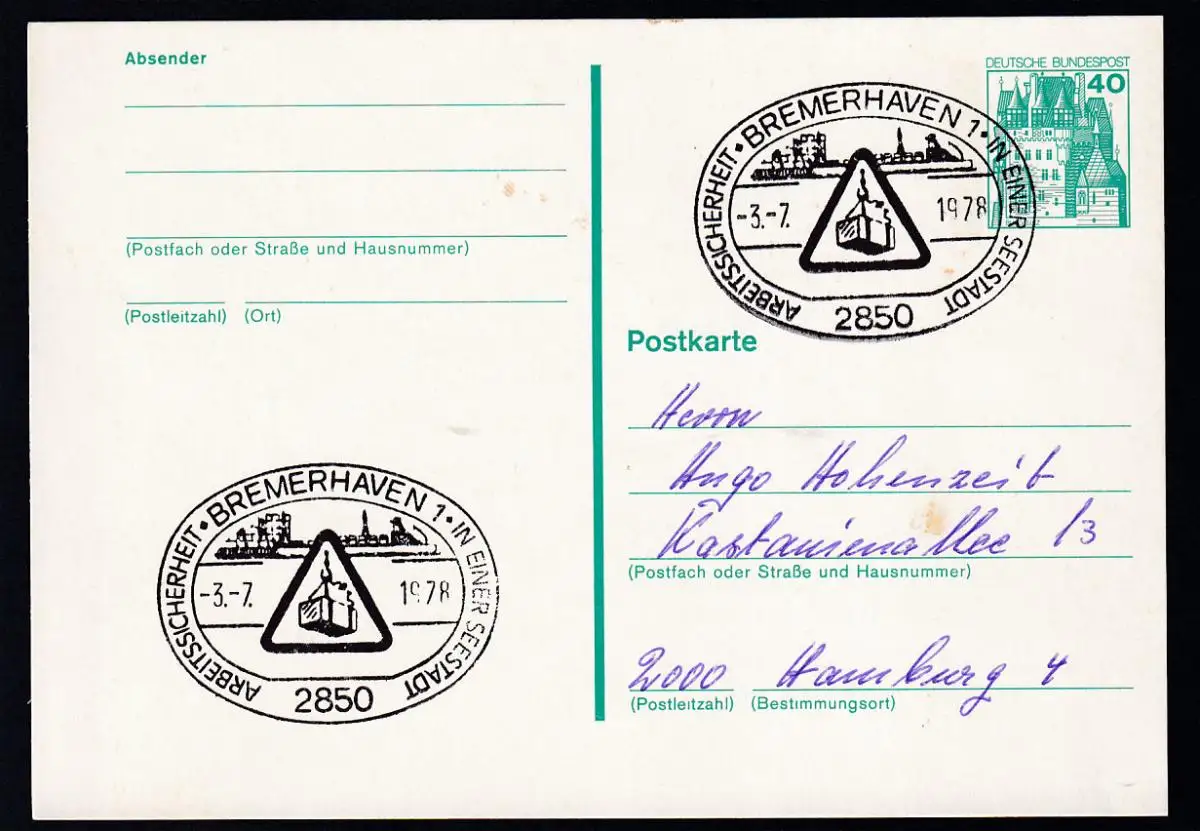 Absender
(Postfach oder Straße und Hausnummer)
(Postleitzahl) (Ort)
DEUTSCHE BUNDESPOST
40
ARBEITSSICHERHEIT · BREMERHAVEN 1 · IN EINER SEESTADT
-3.-7. 1978
2850
Postkarte
Herrn
Hugo Hohenzeit
Kastanienallee 13
(Postfach oder Straße und Hausnummer)
2000 Hamburg 4
(Postleitzahl) (Bestimmungsort)
ARBEITSSICHERHEIT · BREMERHAVEN 1 · IN EINER SEESTADT
-3.-7. 1978
2850